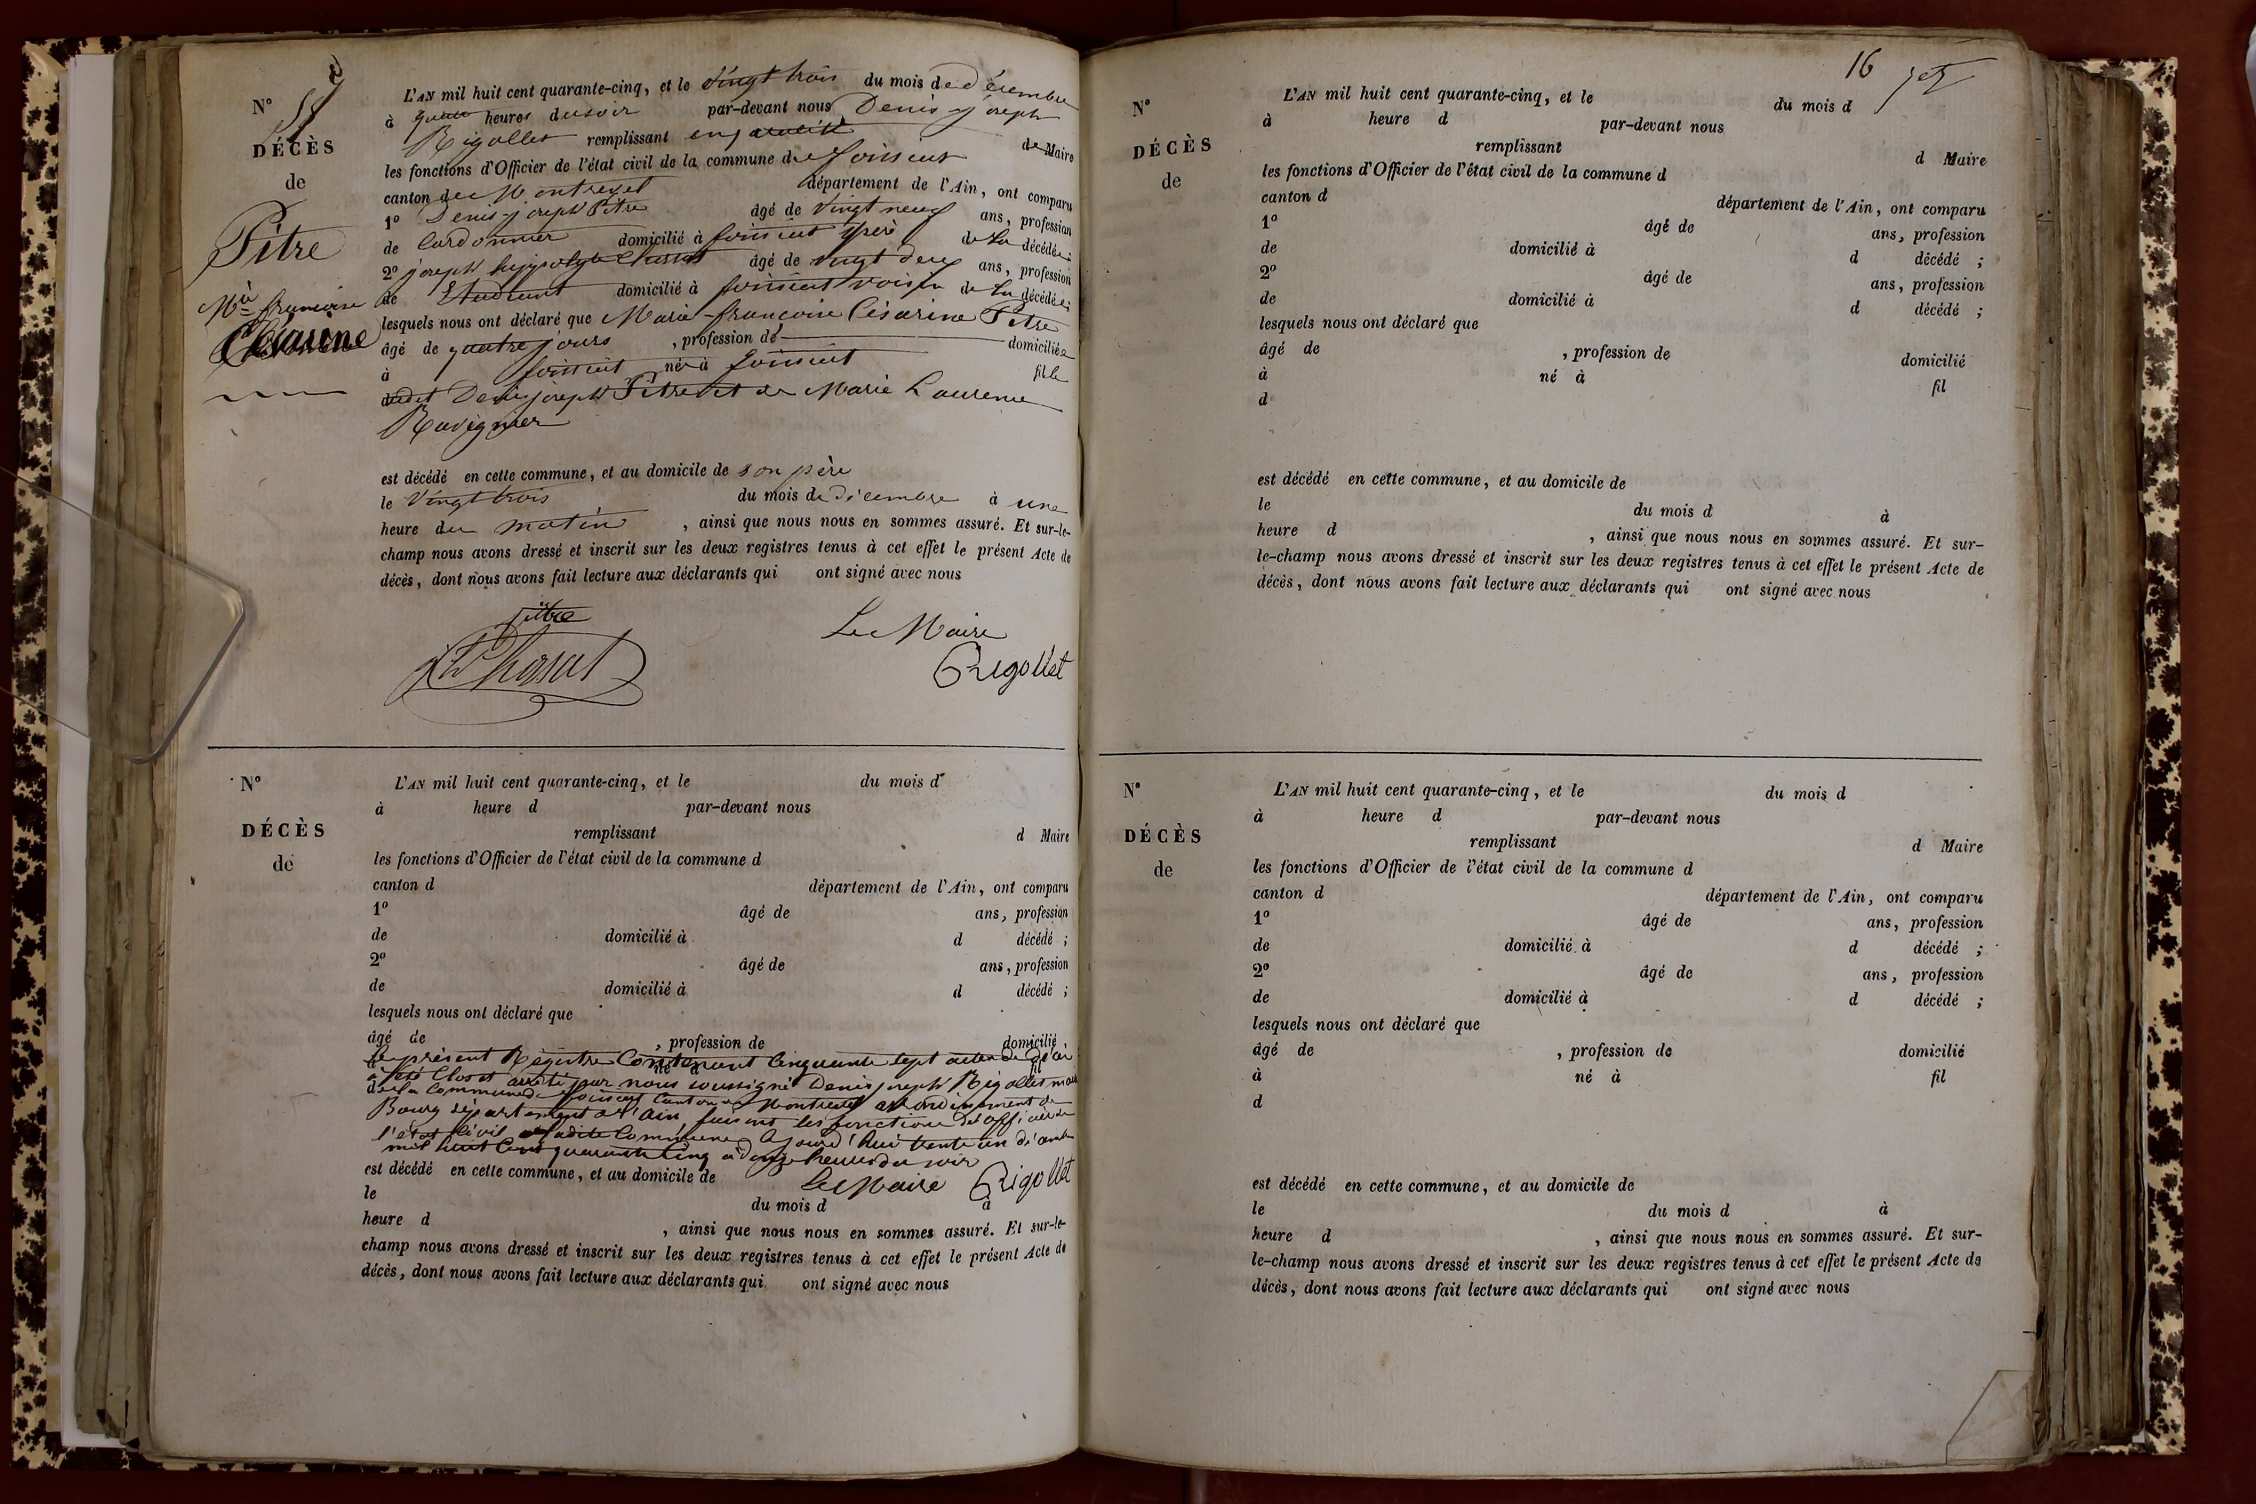 N° 57
DÉCÈS
de
Pitre
Mie françoise
Césarine
L'AN mil huit cent quarante-cinq, et le vingt trois du mois de décembre
à quatre heures du soir par-devant nous Denis joseph
Rigollet remplissant en qualité de Maire
les fonctions d'Officier de l'état civil de la commune de foissiat
canton de Montrevel département de l'Ain, ont comparu
1° Denis joseph Pitre âgé de vingt neuf ans, profession
de Cordonnier domicilié à foissiat père de la décédée;
2° joseph hyppolyte Chosat âgé de vingt deux ans, profession
de Etudiant domicilié à foissiat voisin de la décédée;
lesquels nous ont déclaré que Marie françoise Césarine Pitre
âgé de quatre jours, profession de domiciliée
à foissiat née à foissiat fille
de Denis joseph Pitre et de Marie Laurence
Ravignier
est décédé en cette commune, et au domicile de son père
le vingt trois du mois de décembre à une
heure du matin, ainsi que nous nous en sommes assuré. Et sur-le-
champ nous avons dressé et inscrit sur les deux registres tenus à cet effet le présent Acte de
décès, dont nous avons fait lecture aux déclarants qui ont signé avec nous
Pitre
Le Maire
Chosat
Rigollet
N°
DÉCÈS
de
L'AN mil huit cent quarante-cinq, et le du mois d
à heure d par-devant nous
remplissant d Maire
les fonctions d'Officier de l'état civil de la commune d
canton d département de l'Ain, ont comparu
1° âgé de ans, profession
de domicilié à d décédé ;
2° âgé de ans, profession
de domicilié à d décédé ;
lesquels nous ont déclaré que
âgé de , profession de domicilié
Le présent Registre Contenant Cinquante sept actes de décès
à né à fil
a été Clos et arrêté par nous soussigné Denis joseph Rigollet maire
d
de la Commune de foissiat Canton de Montrevel arrondissement de
Bourg département de l'Ain faisant les fonctions d'officier de
l'état Civil de ladite Commune Ajourd'hui trente un décembre
mil huit Cent quarante Cinq à onze heures du soir
est décédé en cette commune, et au domicile de
Le Maire Rigollet
le du mois d à
heure d , ainsi que nous nous en sommes assuré. Et sur-le-
champ nous avons dressé et inscrit sur les deux registres tenus à cet effet le présent Acte de
décès, dont nous avons fait lecture aux déclarants qui ont signé avec nous
16
N°
DÉCÈS
de
L'AN mil huit cent quarante-cinq, et le du mois d
à heure d par-devant nous
remplissant d Maire
les fonctions d'Officier de l'état civil de la commune d
canton d département de l'Ain, ont comparu
1° âgé de ans, profession
de domicilié à d décédé ;
2° âgé de ans, profession
de domicilié à d décédé ;
lesquels nous ont déclaré que
âgé de , profession de domicilié
à né à fil
d
est décédé en cette commune, et au domicile de
le du mois d à
heure d , ainsi que nous nous en sommes assuré. Et sur-
le-champ nous avons dressé et inscrit sur les deux registres tenus à cet effet le présent Acte de
décès, dont nous avons fait lecture aux déclarants qui ont signé avec nous
N°
DÉCÈS
de
L'AN mil huit cent quarante-cinq, et le du mois d
à heure d par-devant nous
remplissant d Maire
les fonctions d'Officier de l'état civil de la commune d
canton d département de l'Ain, ont comparu
1° âgé de ans, profession
de domicilié à d décédé ;
2° âgé de ans, profession
de domicilié à d décédé ;
lesquels nous ont déclaré que
âgé de , profession de domicilié
à né à fil
d
est décédé en cette commune, et au domicile de
le du mois d à
heure d , ainsi que nous nous en sommes assuré. Et sur-
le-champ nous avons dressé et inscrit sur les deux registres tenus à cet effet le présent Acte de
décès, dont nous avons fait lecture aux déclarants qui ont signé avec nous